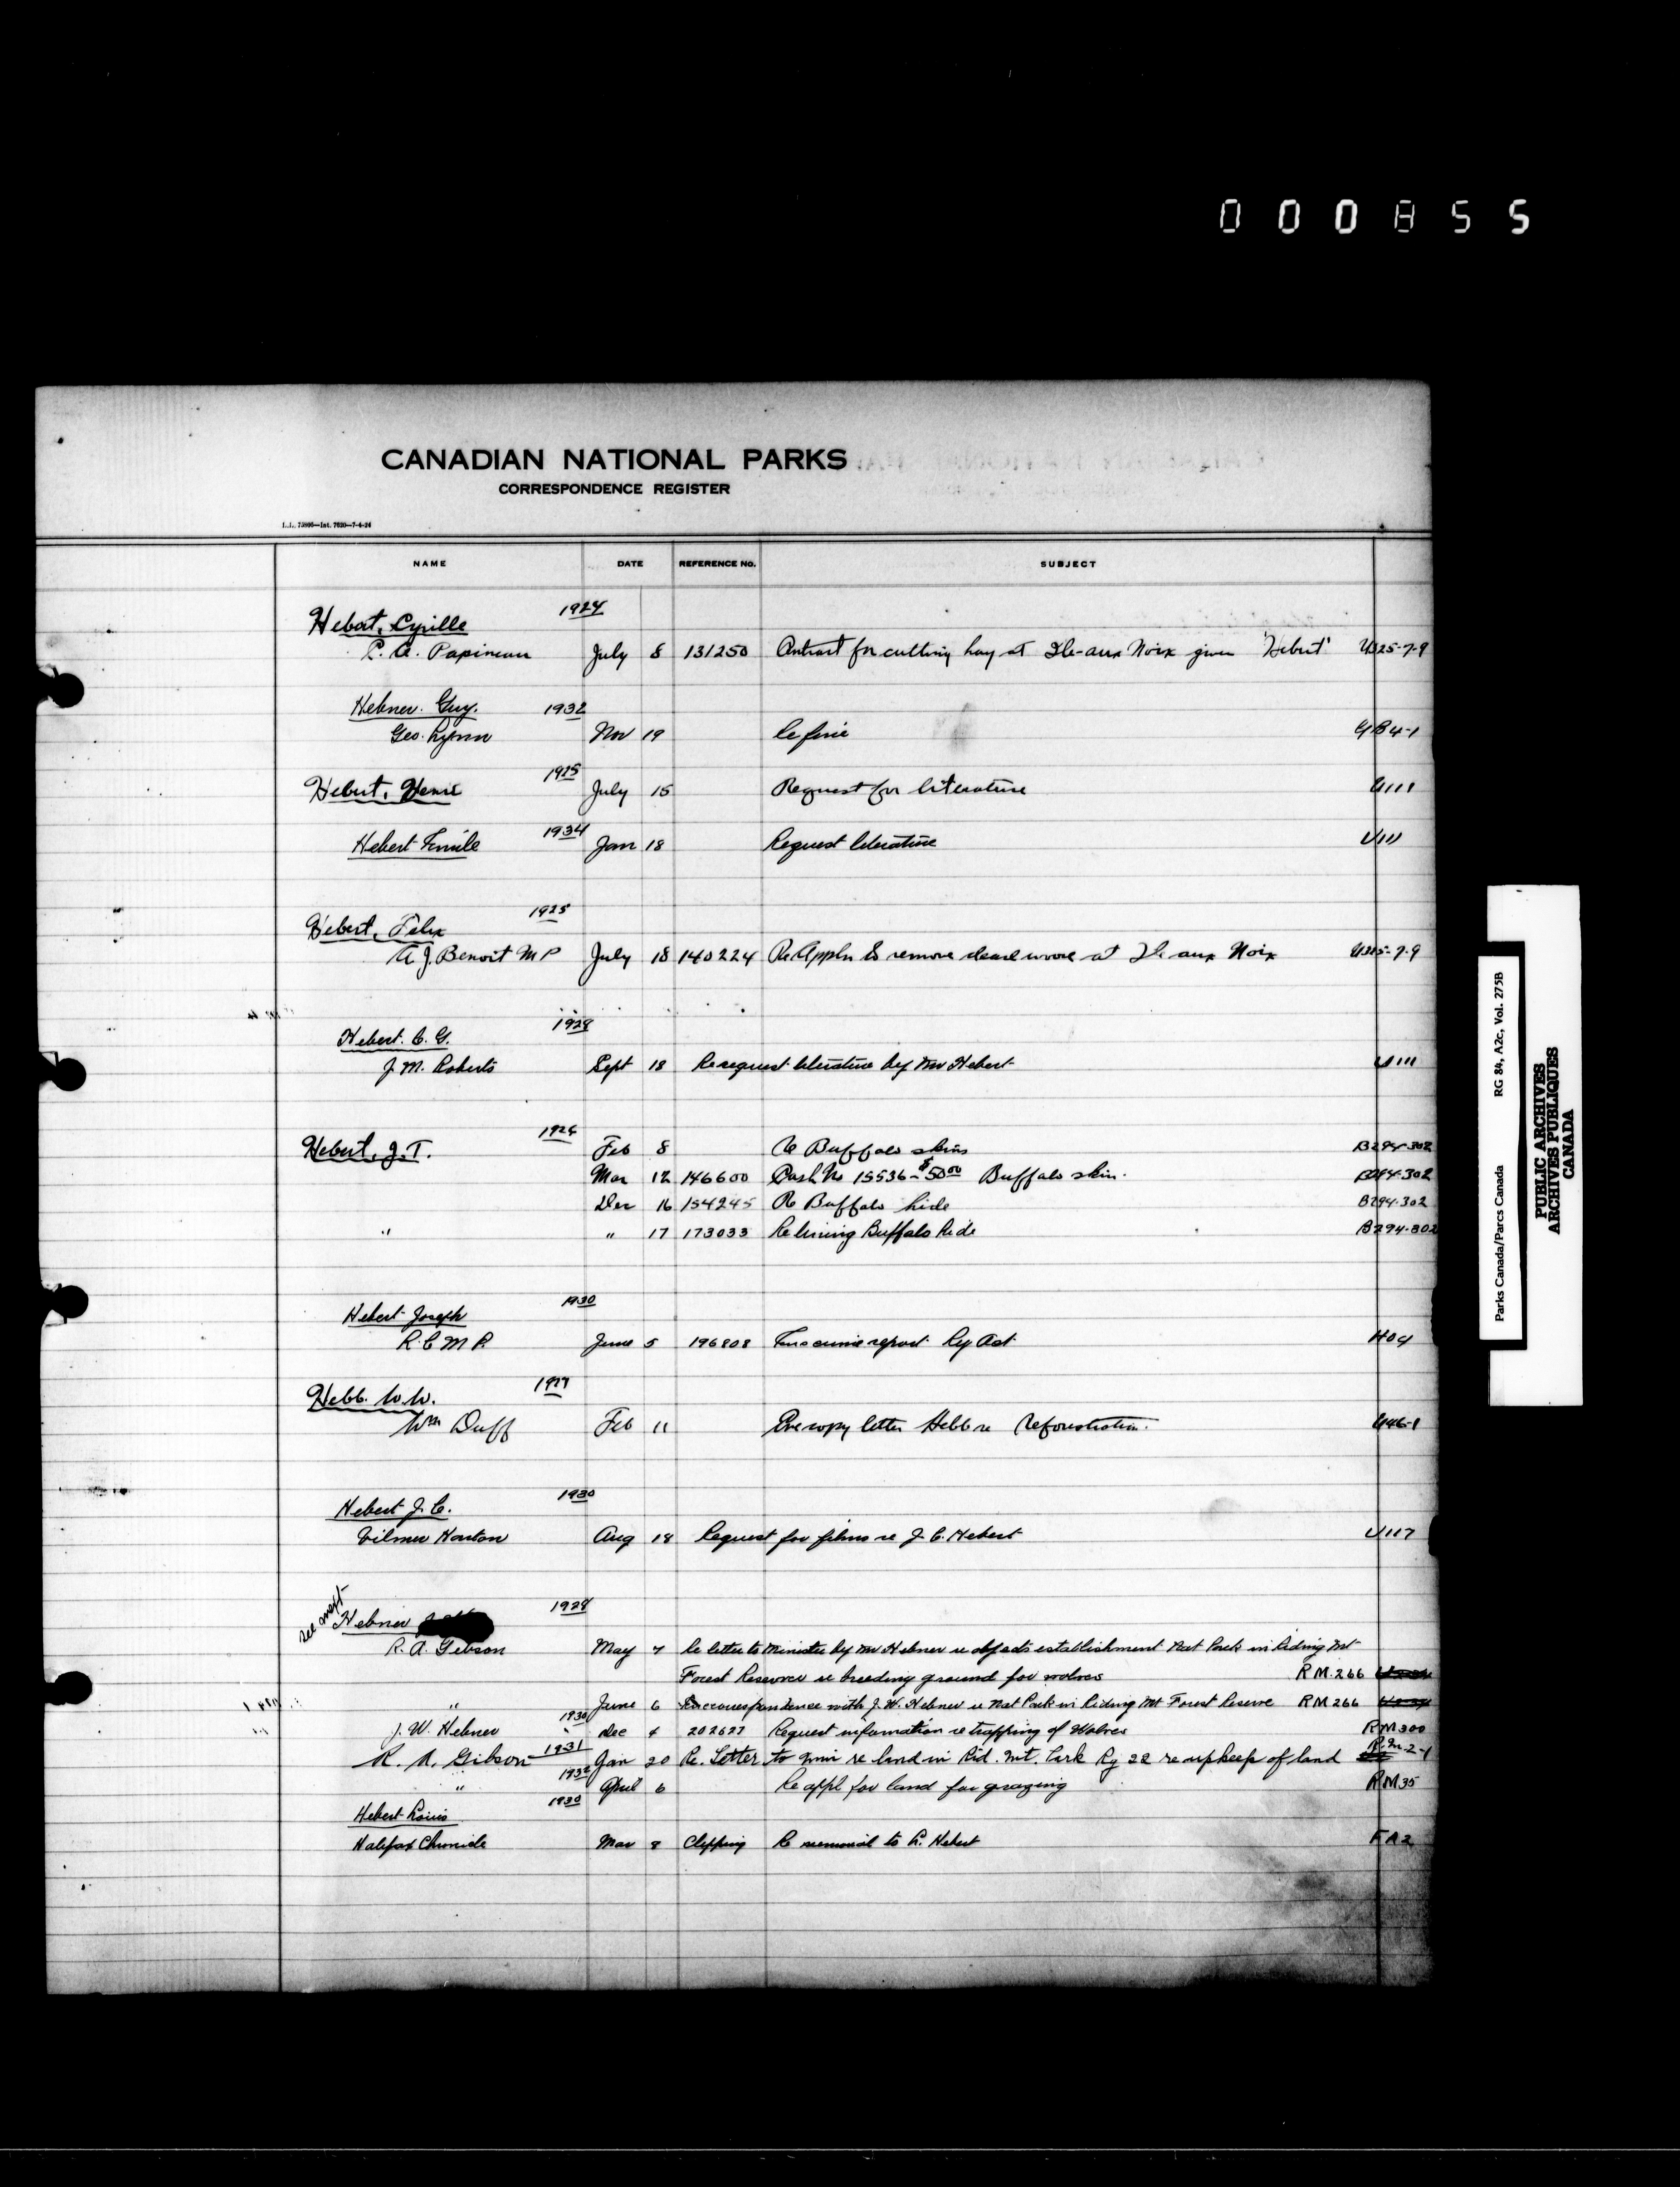 000855
CANADIAN NATIONAL PARKS
CORRESPONDENCE REGISTER
NAME DATE REFERENCE NO. SUBJECT
Hebert, Cyrille 1924
P. A. Papineau July 8 131250 Contract for cutting hay at Ile-aux Noix given "Hebert" U325-7-9
Hebner. Guy. 1932
Geo. Lynn Nov 19 Re fine GB4-1
Hebert, Henri 1925 July 15 Request for literature U111
Hebert Emile 1934 Jan 18 Request literature U111
Hebert, Felix 1925
A J. Benoit M P July 18 140224 Re Appln to remove dead wood at Ile aux Noix U325-7-9
Hebert. C. G. 1928
J. M. Roberts Sept 18 Re request literature by Mr Hebert U111
Hebert, J. T. 1926 Feb 8 Re Buffalo skins B294-302
Mar 12 146600 Cash No 15536-$50.00 Buffalo skin. B294-302
Dec 16 154245 Re Buffalo hide B294-302
" " 17 173033 Re lining Buffalo Hide B294-302
Hebert Joseph 1930
R. C M P. June 5 196808 crime report Ry Act H04
Hebb. W. W. 1927
Wm Duff Feb 11 copy letter Hebb re Reforestation. U46-1
Hebert J. C. 1930
Vilmer Horton Aug 18 Request for films re J. C. Hebert U117
See next
Hebner 1928
R. A. Gibson May 4 Re letter to Minister by Mr Hebner re objects establishment Nat Park in Riding Mt
Forest Reserve re breeding ground for wolves RM.266
" June 6 correspondence with J. W. Hebner re Nat Park in Riding Mt Forest Reserve RM266
J. W. Hebner 1930 Dec 4 202627 Request information re trapping of Wolves RM300
R. A. Gibson 1931 Jan 20 Re. Letter to Min re land in Rid. Mt. Park Rg 22 re upkeep of land R.M.2-1
" 1932 April 6 Re appl for land for grazing RM35
Hebert Louis 1930
Halifax Chronicle Mar 8 Clipping Re memorial to L. Hebert FA2
Parks Canada/Parcs Canada RG 84, A2c, Vol. 275B
PUBLIC ARCHIVES
ARCHIVES PUBLIQUES
CANADA